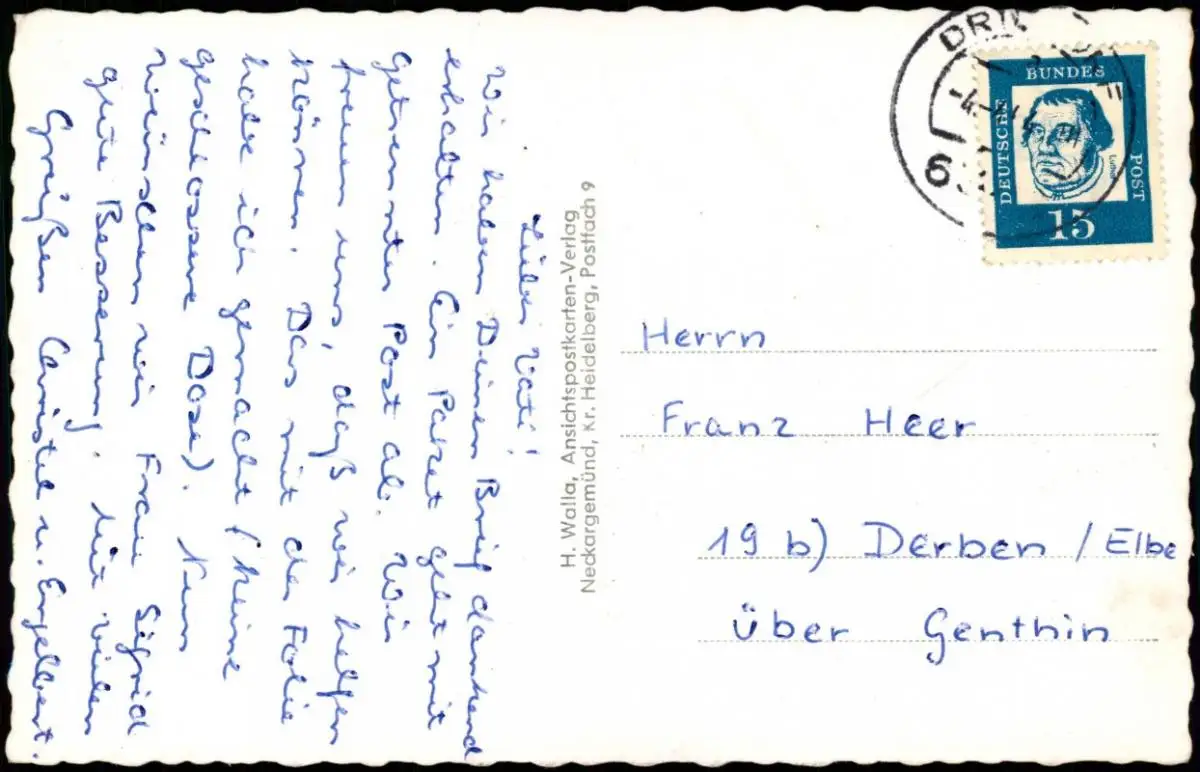 Lieber Vati!
Wir haben Deinen Brief dankend
erhalten. Ein Paket geht mit
getrennter Post ab. Wir
freuen uns, daß wir helfen
können. Das mit der Folie
habe ich gemacht (keine
geschlossene Dose). Nun
wünschen wir Frau Sigrid
gute Besserung. Mit vielen
Grüßen Christel u. Engelbert.
H. Walla, Ansichtspostkarten-Verlag
Neckargemünd, Kr. Heidelberg, Postfach 9
DEUTSCHE
BUNDES
POST
Luther
15
Herrn
Franz Heer
19 b) Derben / Elbe
über Genthin